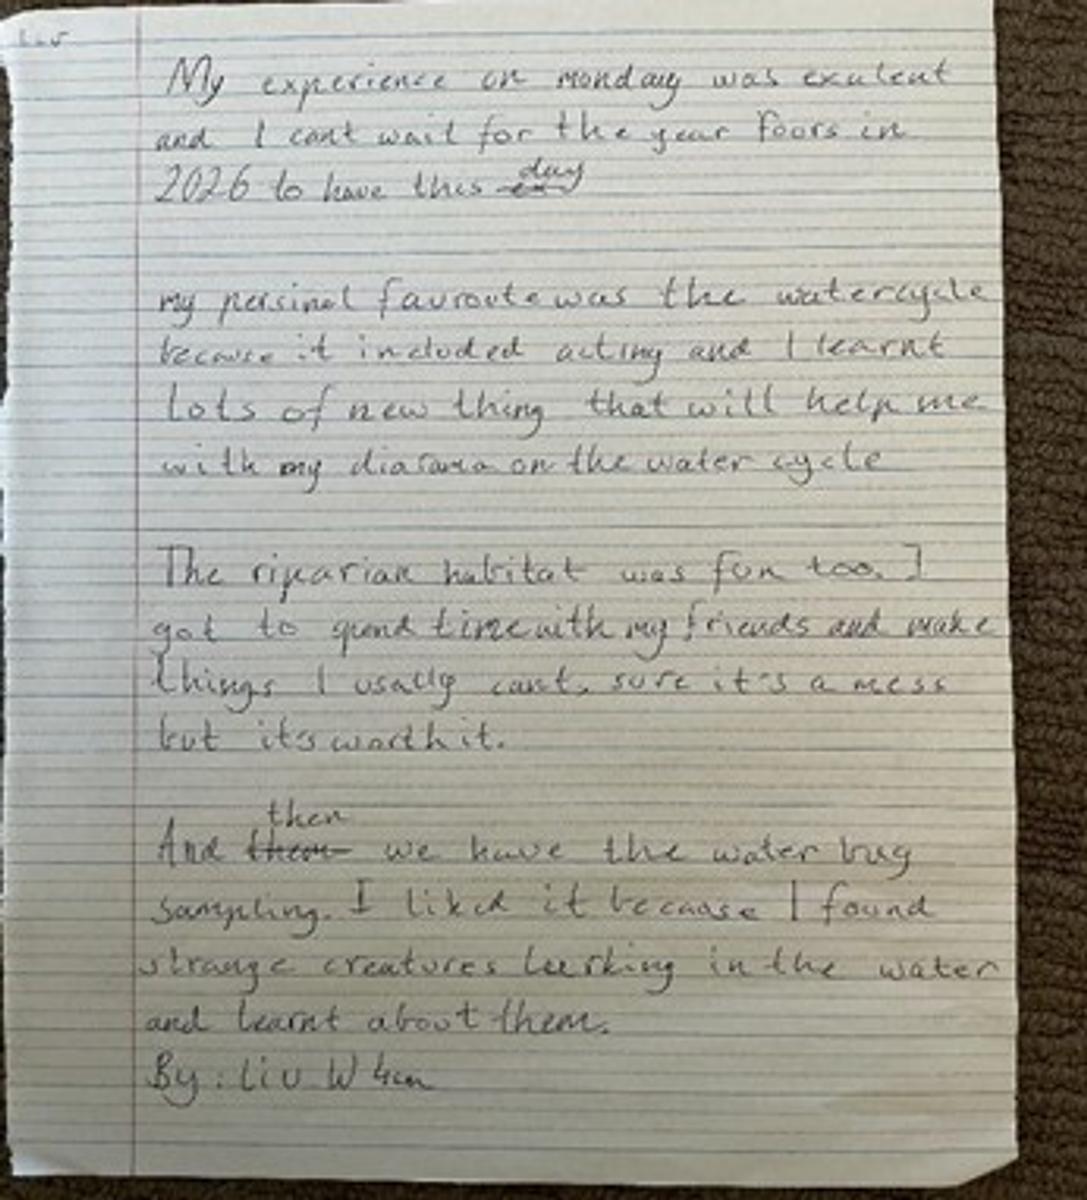 Liv
My experience on monday was exulent
and I cant wait for the year foors in
2026 to have this day
my persinal favroute was the watercycle
because it included acting and I learnt
lots of new thing that will help me
with my diarama on the water cycle
The riparian habitat was fun too. I
got to spend time with my friends and make
things I usally cant. sure it's a mess
but its worth it.
And then we have the water bug
sampling. I liked it because I found
strange creatures leerking in the water
and learnt about them.
By: Liv W